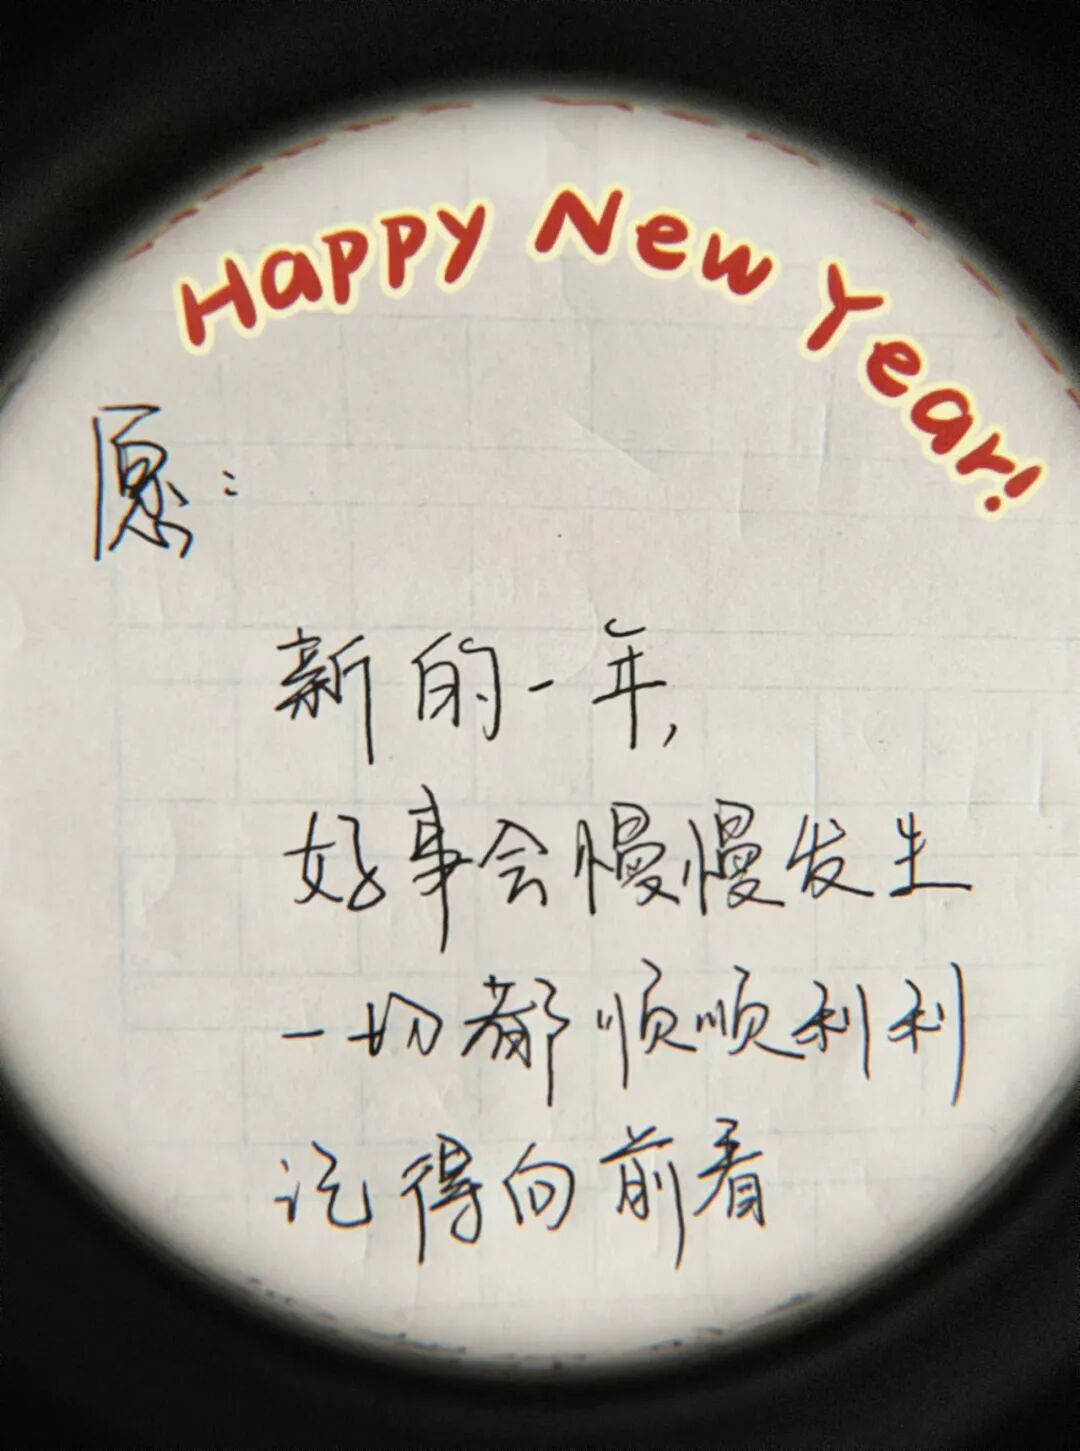 Happy New Year!
愿:
新的一年,
好事会慢慢发生
一切都顺顺利利
记得向前看